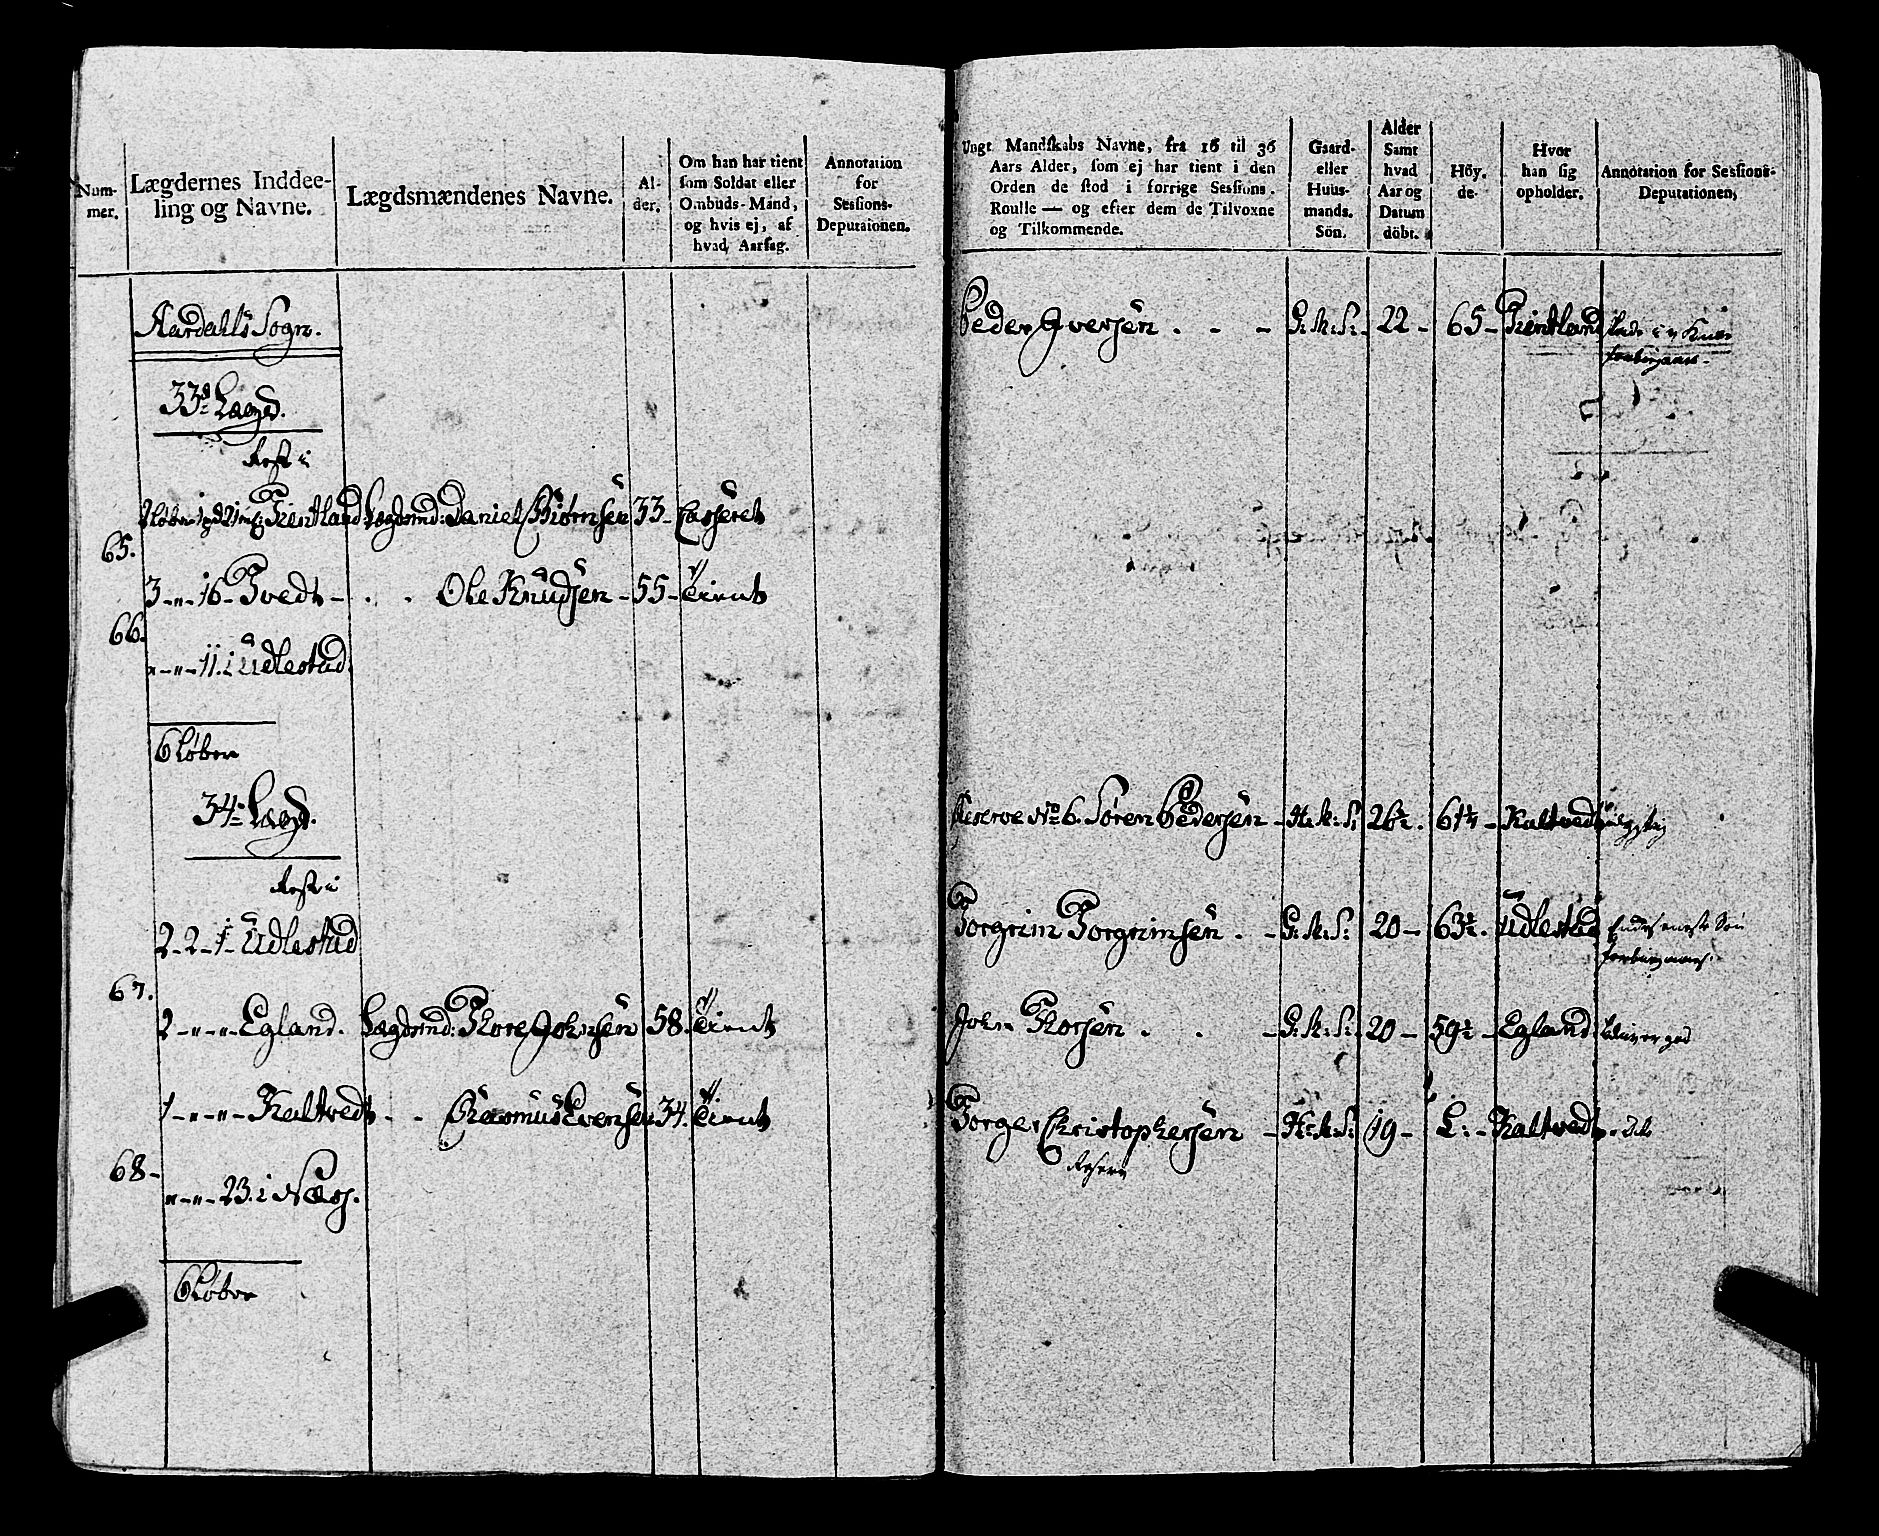 Num-
mer.
Lægdernes Inddee-
ling og Navne.
Lægdsmændenes Navne.
Al-
der.
Om han har tient
som Soldat eller
Ombuds-Mand,
og hvis ej, af
hvad Aarsag.
Annotation
for
Sessions-
Deputaionen.
Aardahls Sogn.
33te Lægd.
Rest i
Fientland Lægdsmd: Daniel Biørnsen 33 – Casseret
65.
3 – " – 16 – Tvedt – . . Ole Knudsen – 55 – Tient
66.
" – " – 11. i Udlestad.
6 Løber
34te Lægd.
Rest i
2 – 2 – 1 – Udlestad
67.
2 – " – " – Egland. Lægdsmd: Thore Johnsen 58. Tient
1 – " – " – Kaltvedt . . Rasmus Evensen 34. Tient
68 –
" – " – 23. i Næss.
6 Løber
Ungt Mandskabs Navne, fra 16 til 36
Aars Alder, som ej har tient i den
Orden de stod i forrige Sessions-
Roulle — og efter dem de Tilvoxne
og Tilkommende.
Gaard-
eller
Huus-
mands-
Søn.
Alder
Samt
hvad
Aar og
Datum
døbt.
Höy-
de-
Hvor
han sig
opholder.
Annotation for Sessions-
Deputationen,
Peder Iversen . . – G: M: S: 22 – 65 – Fientland
Reserve No 6. Søren Pedersen – H: M: S: 26½. 61¼ – Kaltvedt
Torgrim Torgrimsen . – G: M: S: 20 – 63½. Udlestad eneste Søn
John Thorsen . . – G: M: S: 20 – 59½ – Egland
Torger Christophersen – H: M: S: 19 – L: – Kaltvedt
Reserve